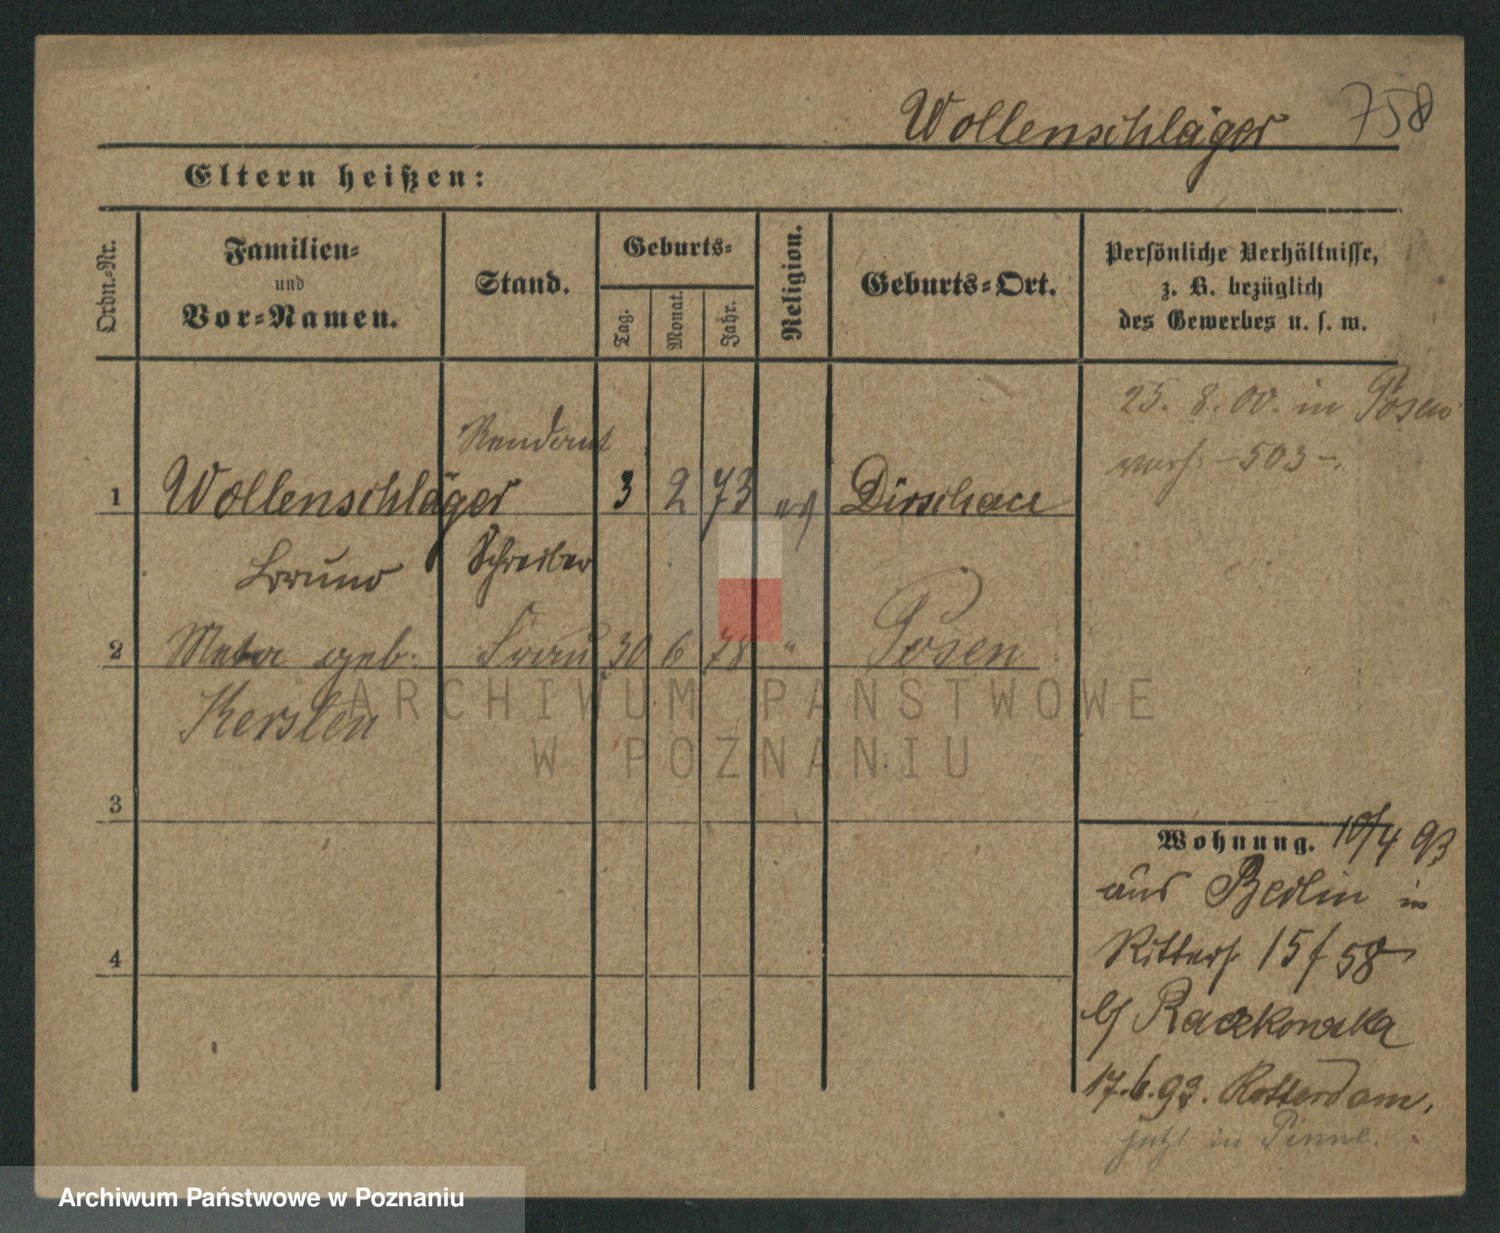 Wollenschläger 758
Eltern heißen:
Ordn.-Nr.
Familien-
und
Vor-Namen.
Stand.
Geburts-
Tag.
Monat.
Jahr.
Religion.
Geburts-Ort.
Persönliche Verhältnisse,
z. B. bezüglich
des Gewerbes u. s. w.
25. 8. 00. in Posen
verh. -503-.
Rendant
1 Wollenschläger 3 2 73 ev Dirschau
Bruno Schreiber
2 Meta geb. Frau 30 6 78 " Posen
Kersten
3
4
Wohnung. 10/4 93
aus Berlin in
Ritterst 15 f 58
b/ Raczkowska
17.6.93. Rotterdam.
jetzt in Pinne.
ARCHIWUM PAŃSTWOWE
W POZNANIU
Archiwum Państwowe w Poznaniu